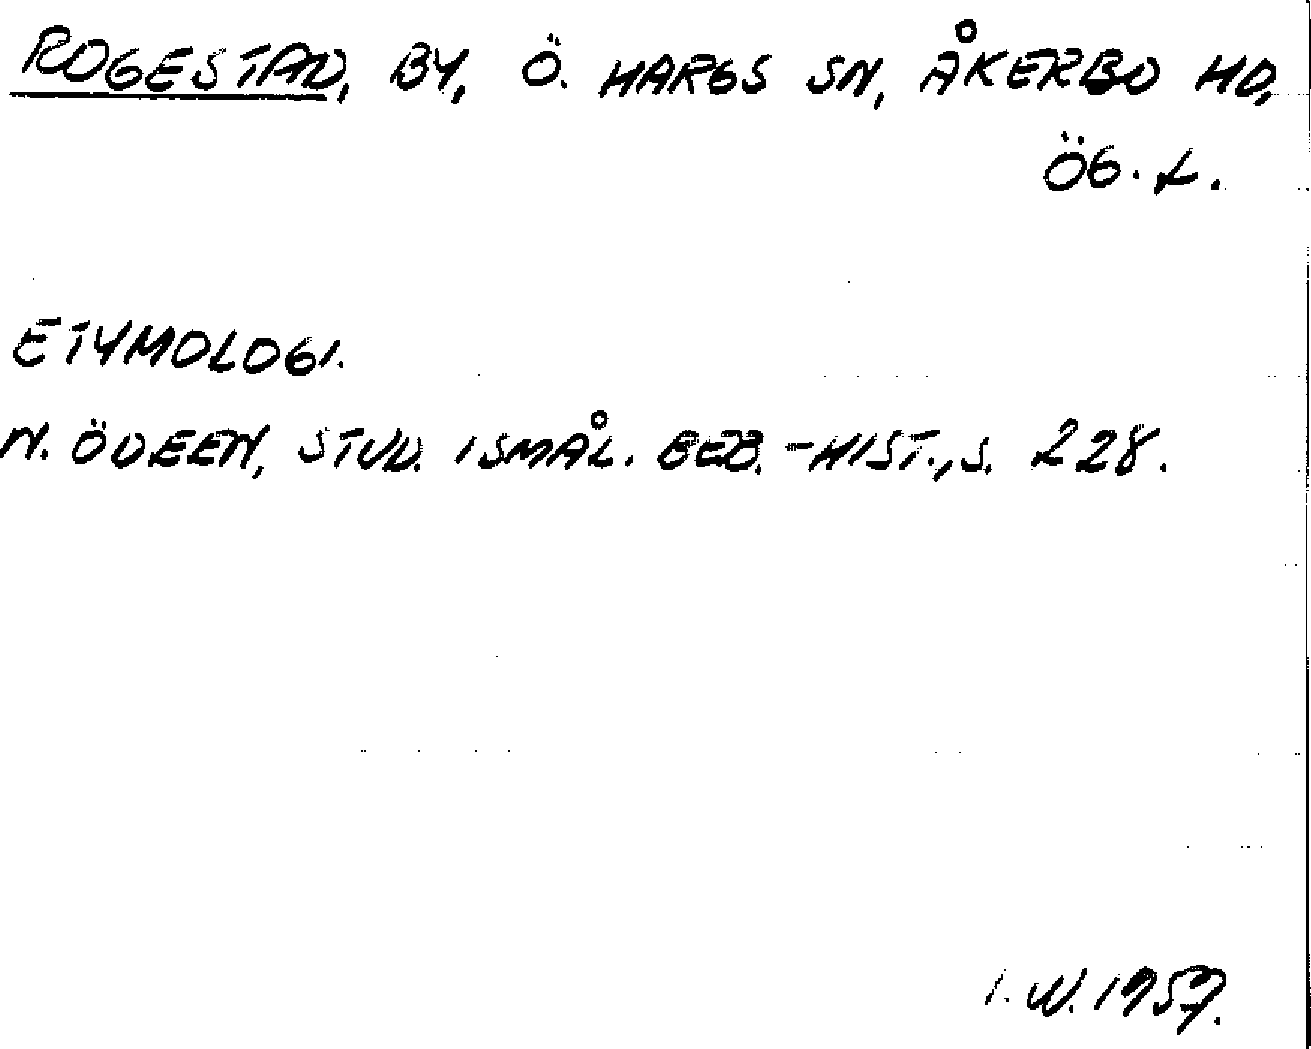 ROGESTAD, BY, Ö. HARGS SN, ÅKERBO HD,
ÖG. L.
ETYMOLOGI.
N. ÖDEEN, STUD. I SMÅL. BEB.-HIST., S. 228.
I. W. 1957.